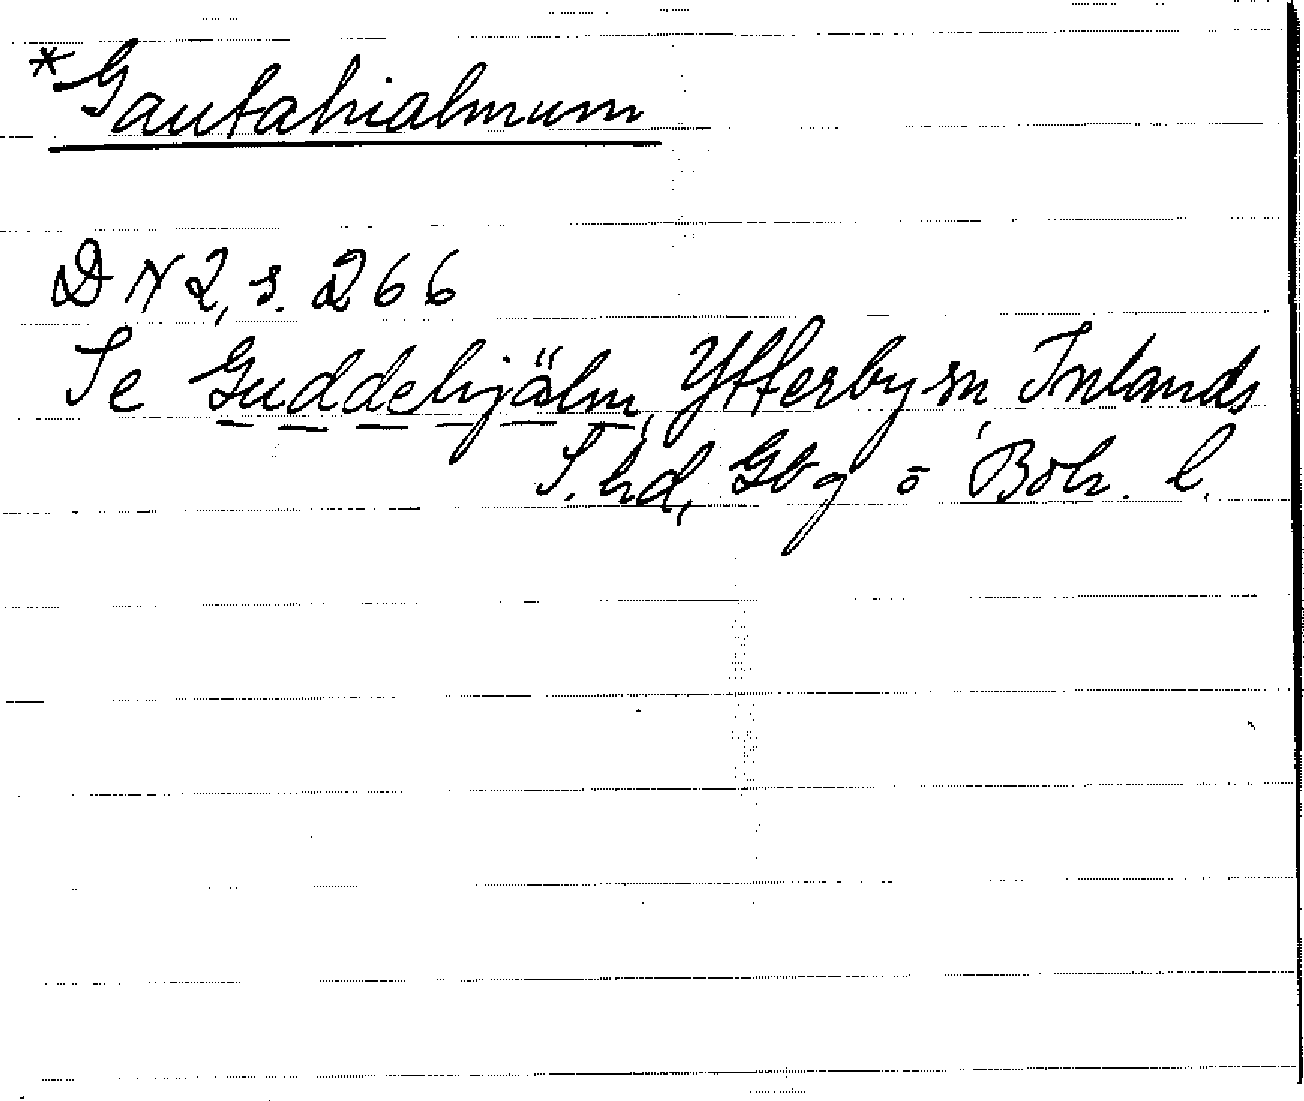 *Gautahialmum
DN 2, s. 266
Se Guddehjälm, Ytterby sn, Inlands
S. hd, Gbg o Boh. l.